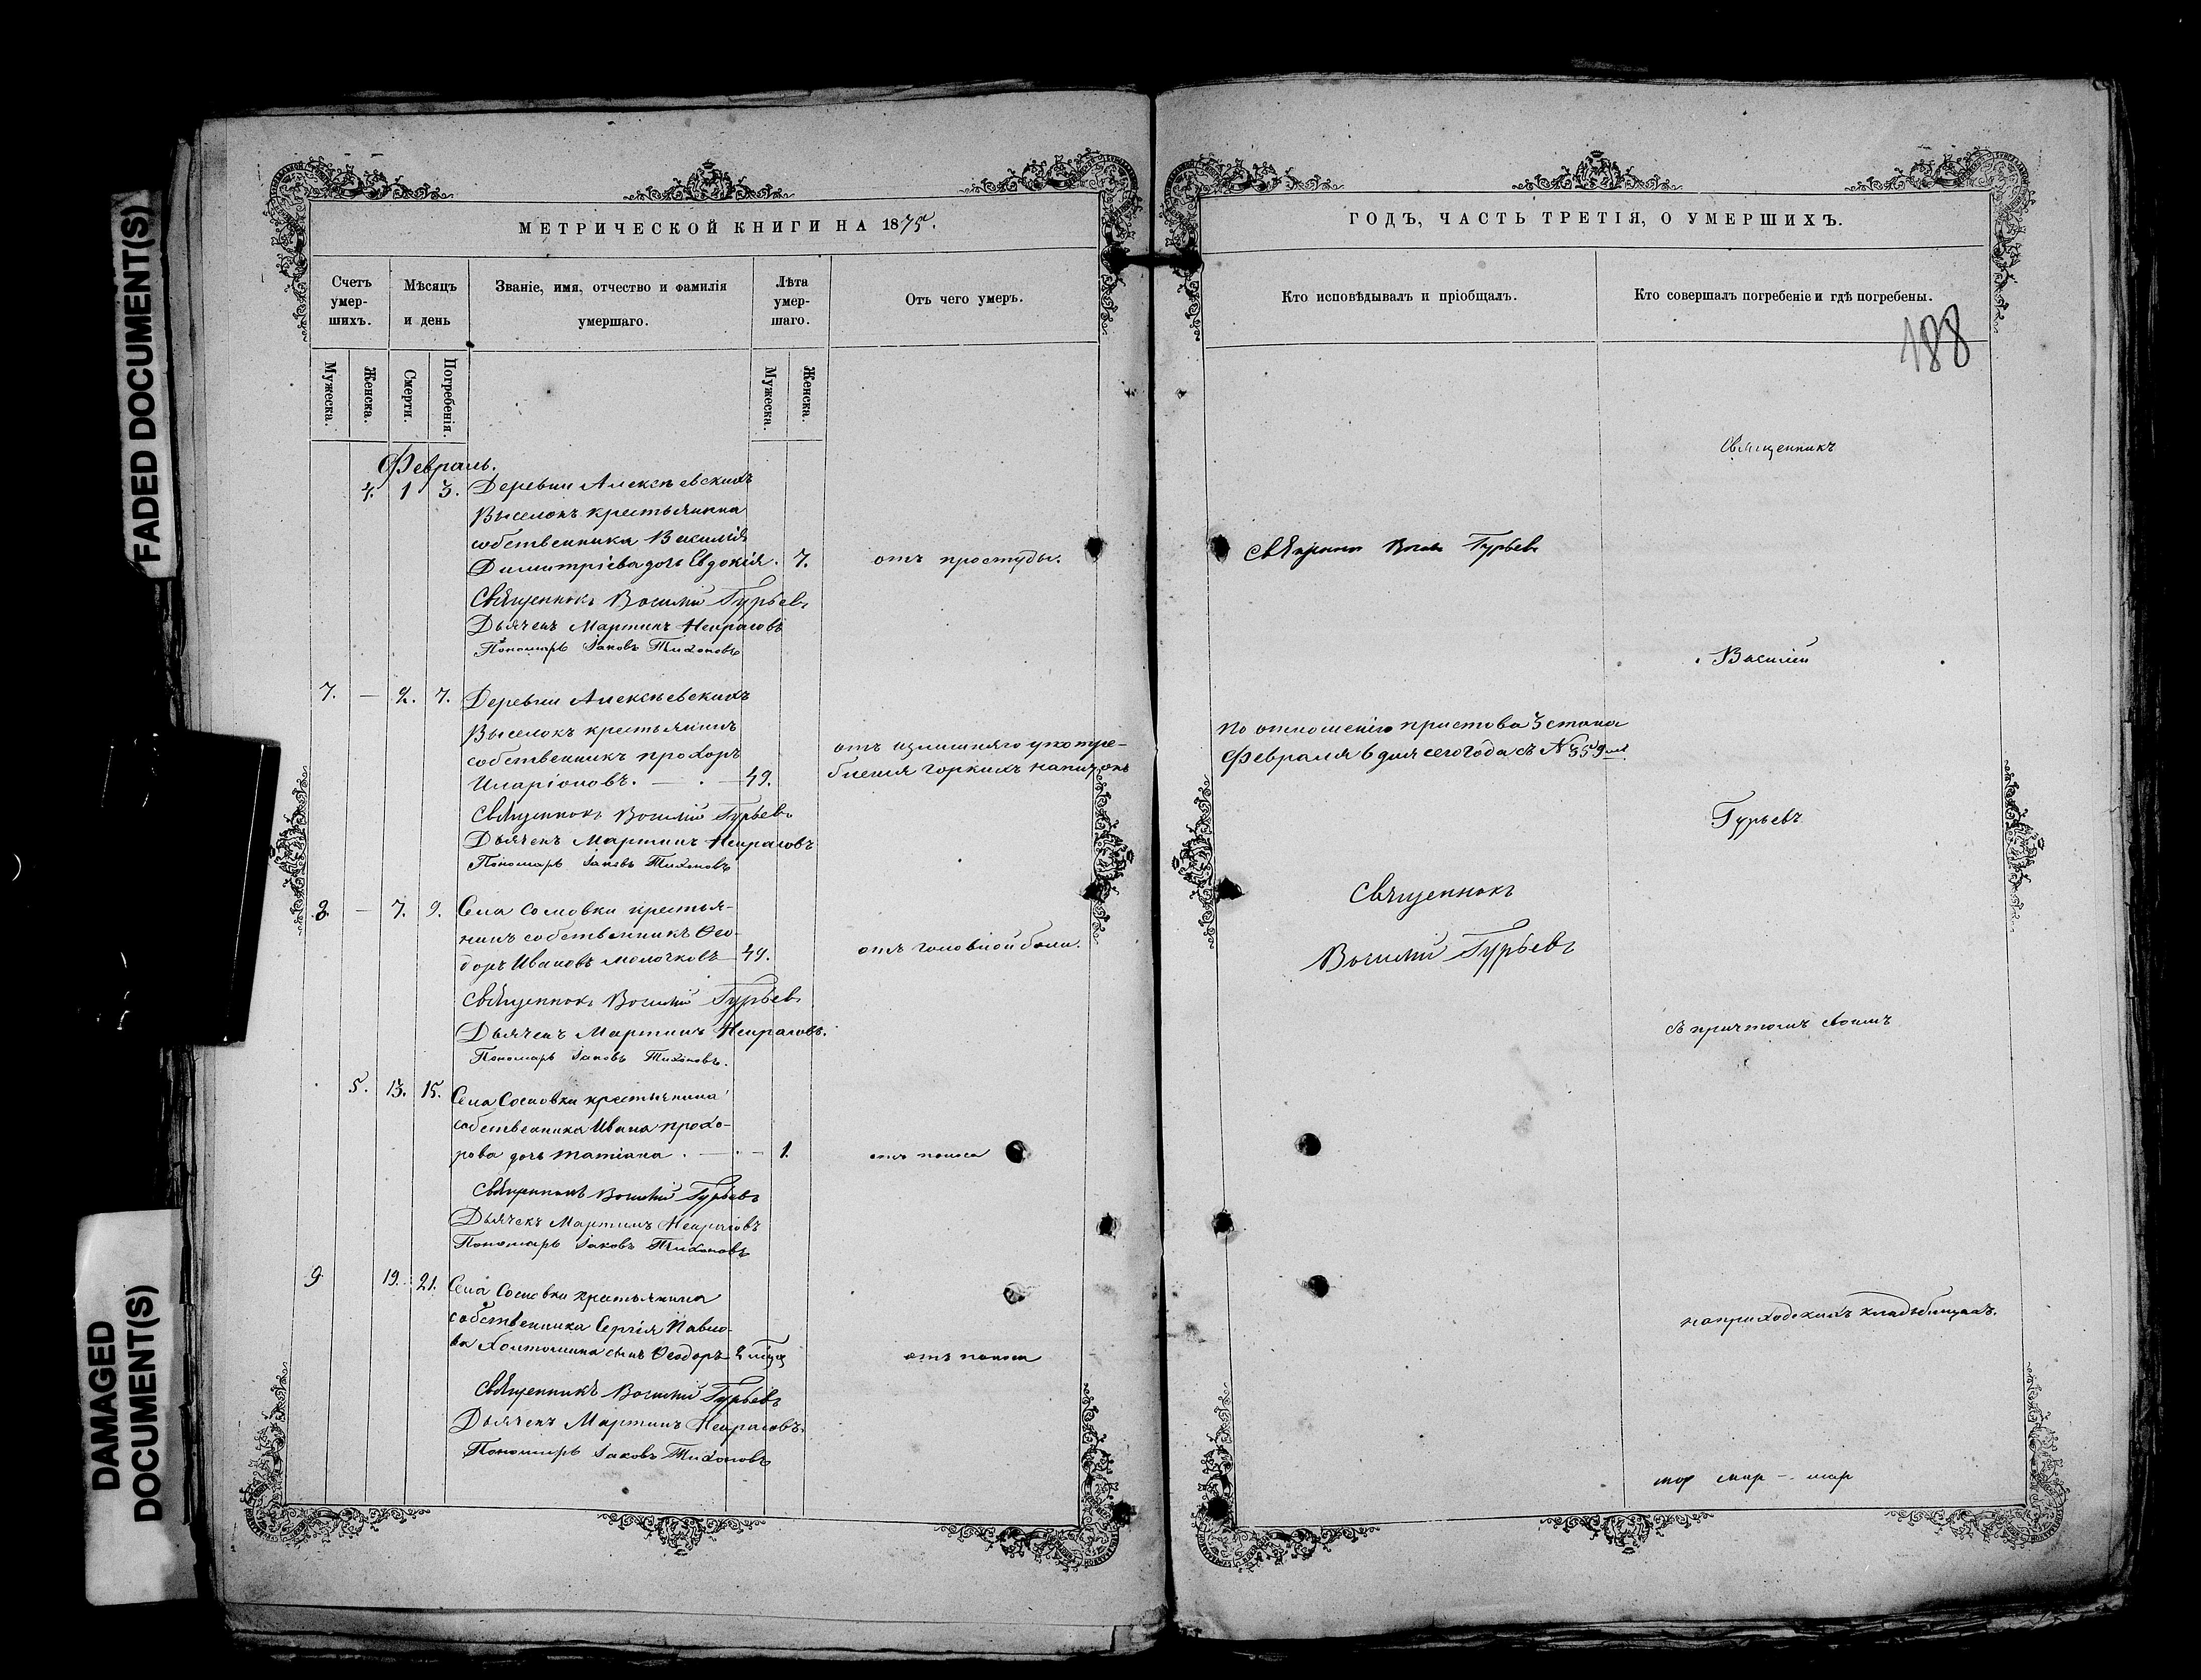 FADED DOCUMENT(S)
DAMAGED
DOCUMENT(S)
МЕТРИЧЕСКОЙ КНИГИ НА 1875.
Счетъ
умер-
шихъ.
Мѣсяцъ
и день
Званіе, имя, отчество и фамилія
умершаго.
Лѣта
умер-
шаго.
Отъ чего умеръ.
Мужеска.
Женска.
Смерти.
Погребенія.
Мужеска.
Женска
Февраль.
4. 1 3. Деревни Алексѣевскихъ
Выселокъ крестьянина
собственника Василія
Димитріева дочь Евдокія. 7. отъ простуды.
Священникъ Василій Гурьевъ
Дьячекъ Мартинъ Некрасовъ
Пономарь Іаковъ Тихоновъ
7. — 2. 7. Деревни Алексѣевскихъ
Выселокъ крестьянинъ
собственникъ Прохоръ
Иларіоновъ. — 49. отъ излишняго употре-
бленія горкихъ напитковъ
Священникъ Василій Гурьевъ
Дьячекъ Мартинъ Некрасовъ
Пономарь Іаковъ Тихоновъ
8. — 7. 9. Села Сосновки крестья-
нинъ собственникъ Ѳео-
доръ Ивановъ Молочковъ 49. отъ головной боли.
Священникъ Василій Гурьевъ
Дьячекъ Мартинъ Некрасовъ.
Пономарь Іаковъ Тихоновъ.
5. 13. 15. Села Сосновки крестьянина
собственника Ивана Прохо-
рова дочь Татіана . — 1. отъ поноса
Священникъ Василій Гурьевъ
Дьячекъ Мартинъ Некрасовъ
Пономарь Іаковъ Тихоновъ
9 19. 21. Села Сосновки крестьянина
собственника Сергія Павло-
ва сынъ Ѳеодоръ 2 отъ поноса
Священникъ Василій Гурьевъ
Дьячекъ Мартинъ Некрасовъ.
Пономарь Іаковъ Тихоновъ
ГОДЪ, ЧАСТЬ ТРЕТІЯ, О УМЕРШИХЪ.
Кто исповѣдывалъ и пріобщалъ.
Кто совершалъ погребеніе и гдѣ погребены.
188
Священникъ
Гурьевъ
Василій
по отношенію пристава 3 стана
Февраля 6 дня сего года съ № 559
Гурьевъ
Священникъ
Василій Гурьевъ
съ причтомъ своимъ
на приходскихъ кладбищахъ.